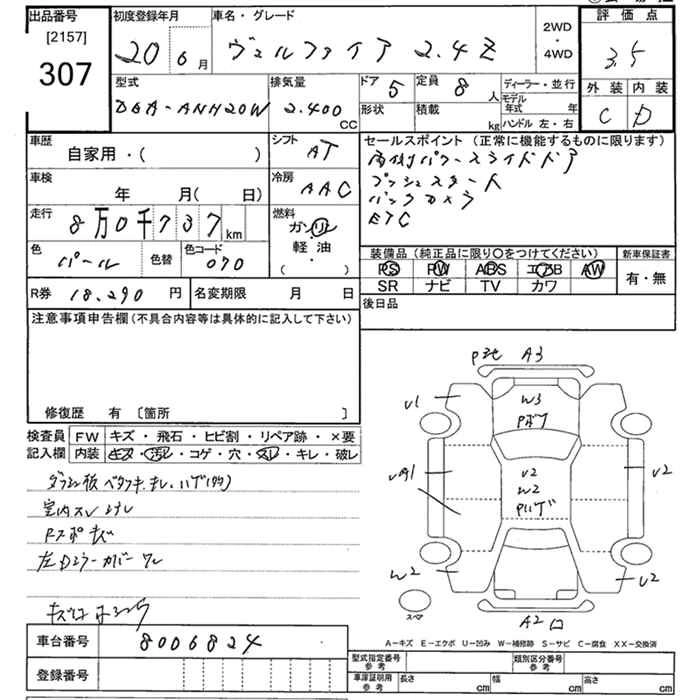 出品番号
[2157]
307
初度登録年月
20 6 月
車名・グレード
ヴェルファイア 2.4Z
2WD
・
4WD
評価点
3.5
外装 内装
C D
型式
DBA-ANH20W
排気量
2.400
CC
ドア 5
定員 8 人
形状
積載 kg
ディーラー・並行
モデル年式 年
ハンドル 左・右
車歴
自家用・( )
シフト AT
セールスポイント (正常に機能するものに限ります)
両側パワースライドドア
プッシュスタート
バックカメラ
ETC
車検
年 月( 日)
冷房 AAC
走行
8万0千737 km
燃料
ガソリン
軽油
( ・ )
色 パール
色替
色コード 070
装備品 (純正品に限り○をつけてください)
PS PW ABS エアB AW
SR ナビ TV カワ
新車保証書
有・無
R券 18,290 円
名変期限 月 日
後日品
注意事項申告欄 (不具合内容等は具体的に記入して下さい)
修復歴 有 [箇所 ]
検査員記入欄
FW キズ・飛石・ヒビ割・リペア跡・×要
内装 キズ・汚レ・コゲ・穴・スレ・キレ・破レ
室内スレ ヨゴレ
左Dミラーカバーワレ
P地 A3
U1
W3
Pボケ
U2
W2
Pハゲ
U2
W2
U2
スペア
A2 ロ
A－キズ E－エクボ U－凹み W－補修跡 S－サビ C－腐食 XX－交換済
車台番号 8006824
登録番号
型式指定番号 参考
類別区分番号 参考
車庫証明用 参考
長さ cm
幅 cm
高さ cm